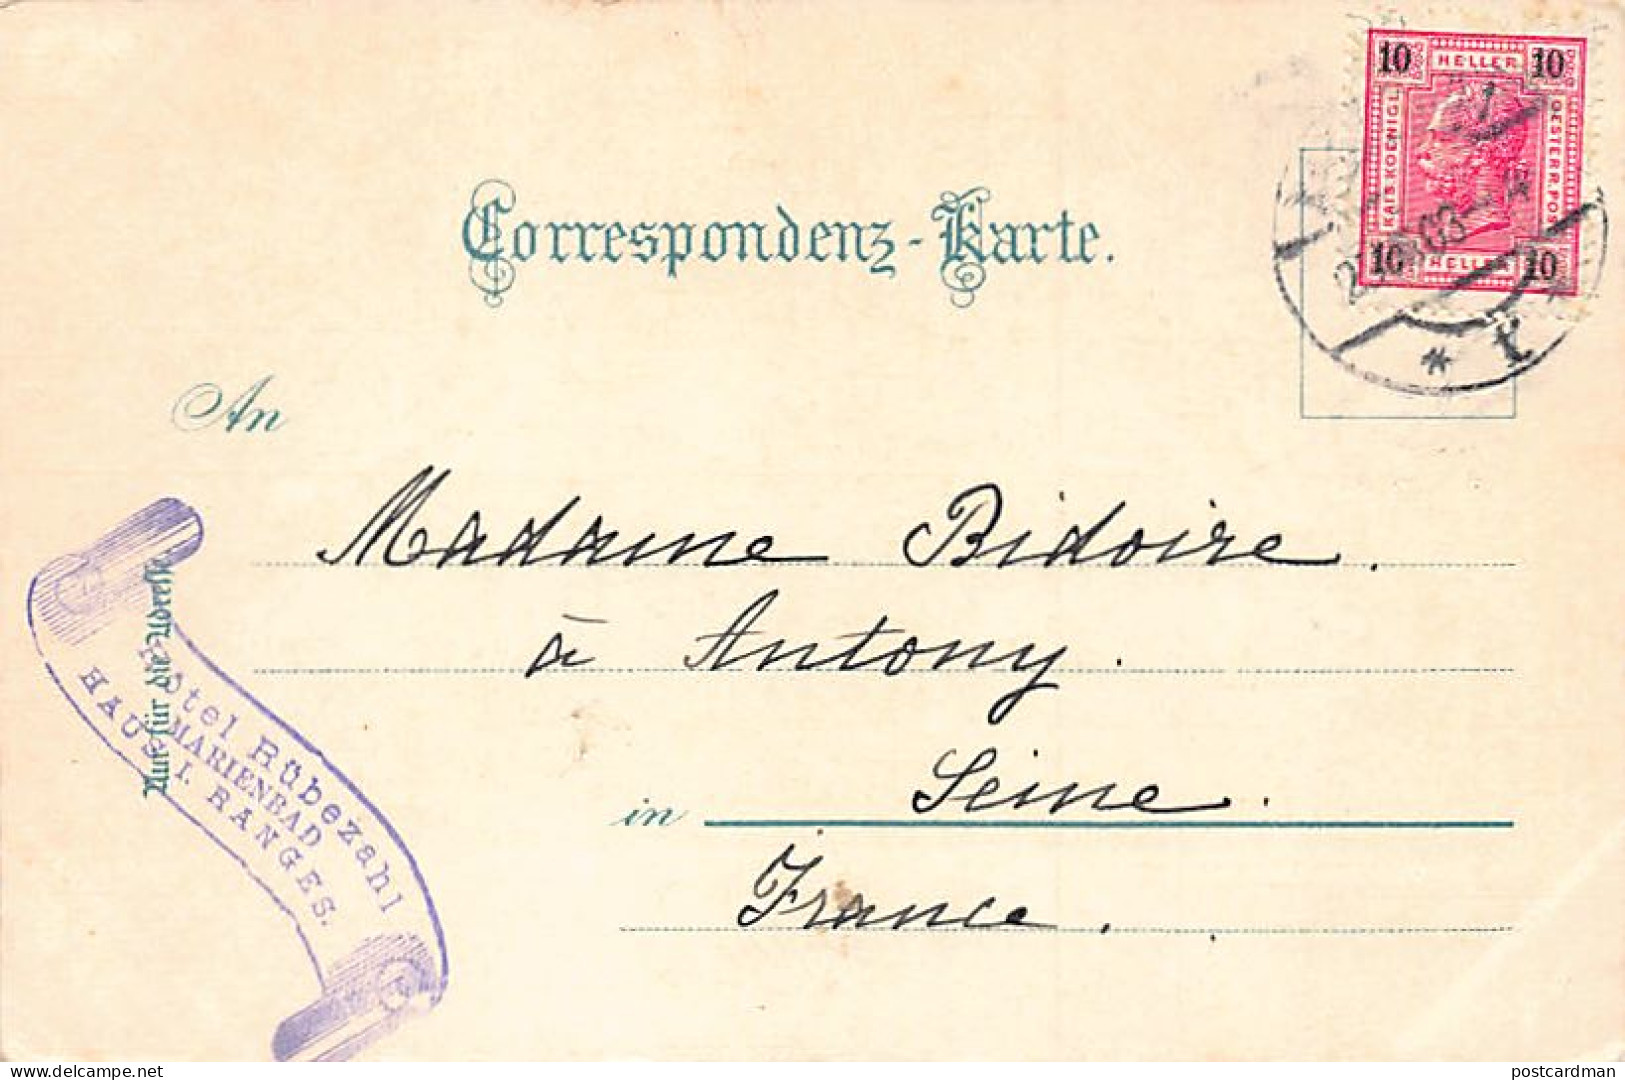 Correspondenz-Karte.
10 HELLER 10
KAIS. KOENIGL.
OESTERR. POST
10 HELLER 10
03
An
Madame Bidoire.
à Antony.
in Seine.
France.
Nur für die Adresse
Hotel Rübezahl
MARIENBAD
HAUS I. RANGES.
delcampe.net
postcardman